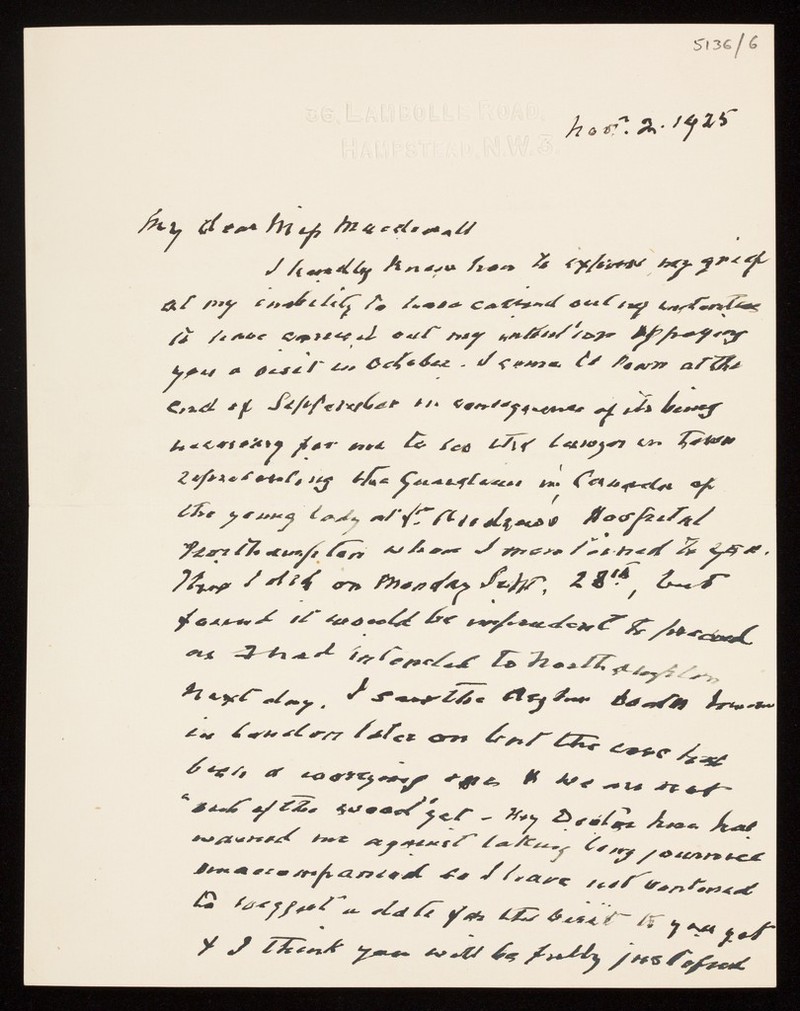 5136/6
36, LAMBOLLE ROAD,
HAMPSTEAD, N.W.3.
Novr. 2. 1925
My dear Miss Macdonall
I hardly know how to express my grief
at my inability to have carried out my intention
to have carried out my intention of paying
you a visit in October. I came to Town at the
end of September in consequence of its being
necessary for me to see the lawyer in Town
representing the Guardians in Canada of
the young lady at St. Andrews Hospital
Northampton whom I mentioned to you.
This I did on Monday Sept. 28th, but
found it would be imprudent to proceed
as I had intended to Northampton
next day. I saw the Asylum Doctor
in London later on but the case has
been a worrying one & we are not
"out of the wood" yet - My Doctor has
warned me against taking long journies
unaccompanied so I have not ventured
to suggest a date for the visit to you yet
& I think you will be fully justified